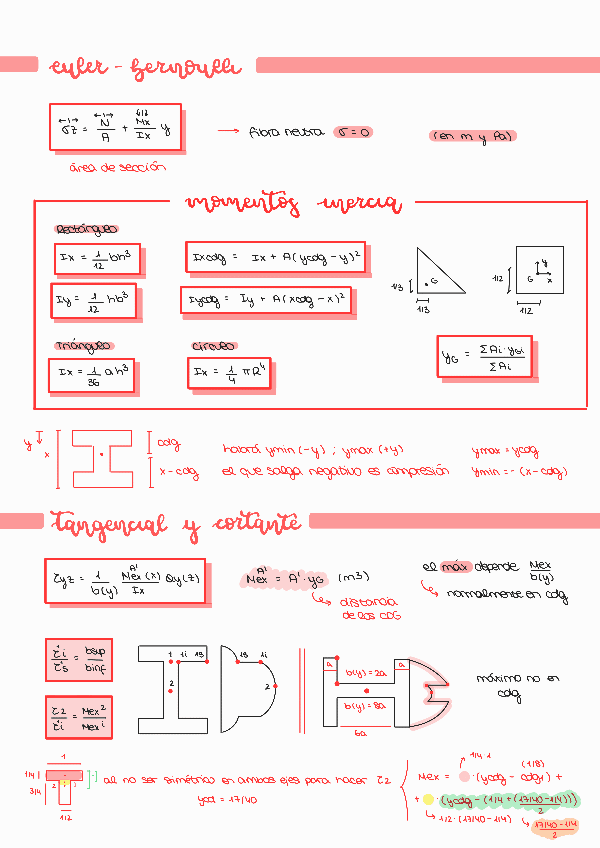 euler - bernoulli
σz = N/A + Mx/Ix y
→ fibra neutra σ = 0
(en m y Pa)
área de sección
momentos inercia
Rectángulo
Ix = 1/12 bh³
Ixcdg = Ix + A(ycdg - y)²
Iy = 1/12 hb³
Iycdg = Iy + A(xcdg - x)²
G
1/3
1/3
y
G x
1/2
1/2
Triángulo
Ix = 1/36 ah³
Círculo
Ix = 1/4 πR⁴
yG = ΣAi·yGi / ΣAi
y
x
cdg
x - cdg
habrá ymin (-y) ; ymax (+y)
ymax = ycdg
el que salga negativo es compresión
ymin = - (x - cdg)
tangencial y cortante
τyz = 1/b(y) Mex^A'(x)/Ix Qy(z)
Mex^A' = A'·yG (m3)
distancia de los CDG
el máx depende Mex/b(y)
normalmente en cdg
τi/τs = bsup/binf
τ2/τi = Mex²/Mexⁱ
1 1i 1s
2
1s 1i
2
a
a
b(y) = 2a
b(y) = 8a
6a
máximo no en cdg
1
1/4
3/4
2
1/2
al no ser simétrico en ambos ejes para hacer τ2
ycd = 17/40
1/4·1
(1/8)
Mex = ·(ycdg - cdg1) +
+ ·(ycdg - (1/4 + (17/40 - 1/4)/2))
1/2·(17/40 - 1/4)
17/40 - 1/4 / 2